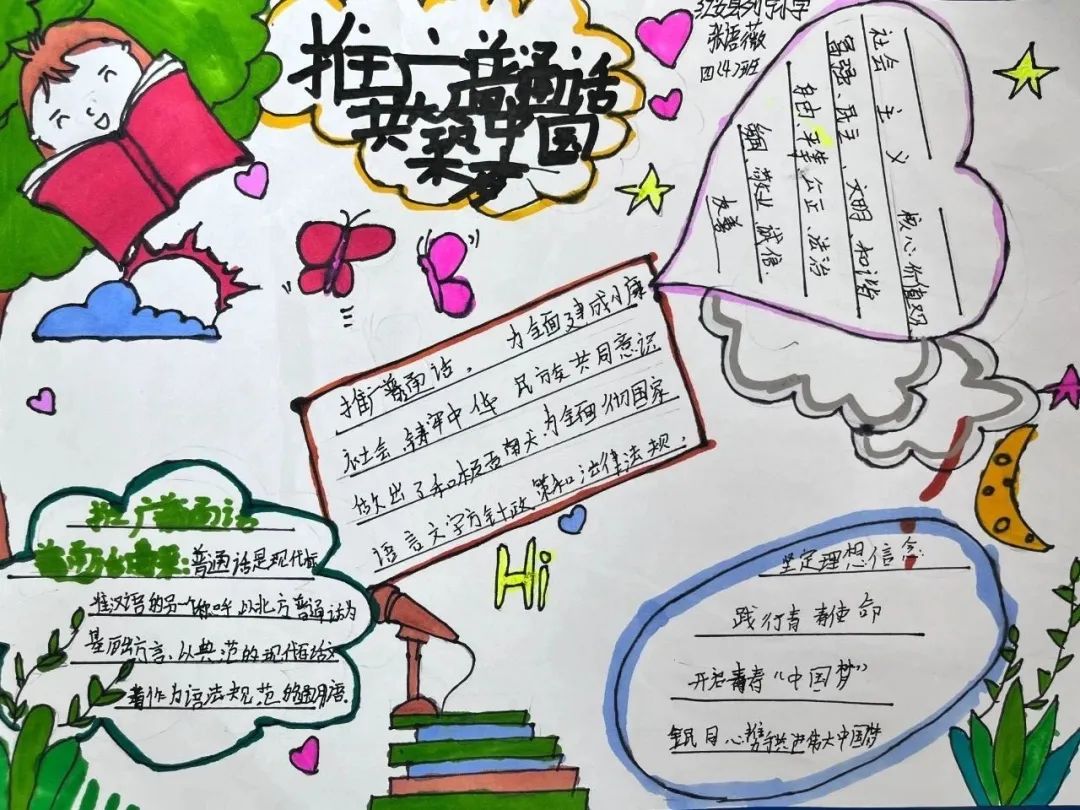 推广普通话
共筑中国
梦
张语薇
四(4)班
社会主义核心价值观
富强、民主、文明、和谐
自由、平等、公正、法治
敬业、诚信、
友善
推广普通话，为全面建成小康
社会 中华民族共同意识
做出了 为全面 彻国家
语言文字方针政策和法律法规，
推广普通话
普通话是现代标
准汉语的另一个称呼，以北方普通话为
基础方言、以典范的现代白话文
著作为语法规范的通用语.
Hi
坚定理想信念
践行青春使命
开启青春“中国梦”
全民同心携手共 伟大中国梦